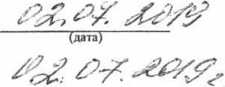 02.07.2019
(дата)
02.07.2019г